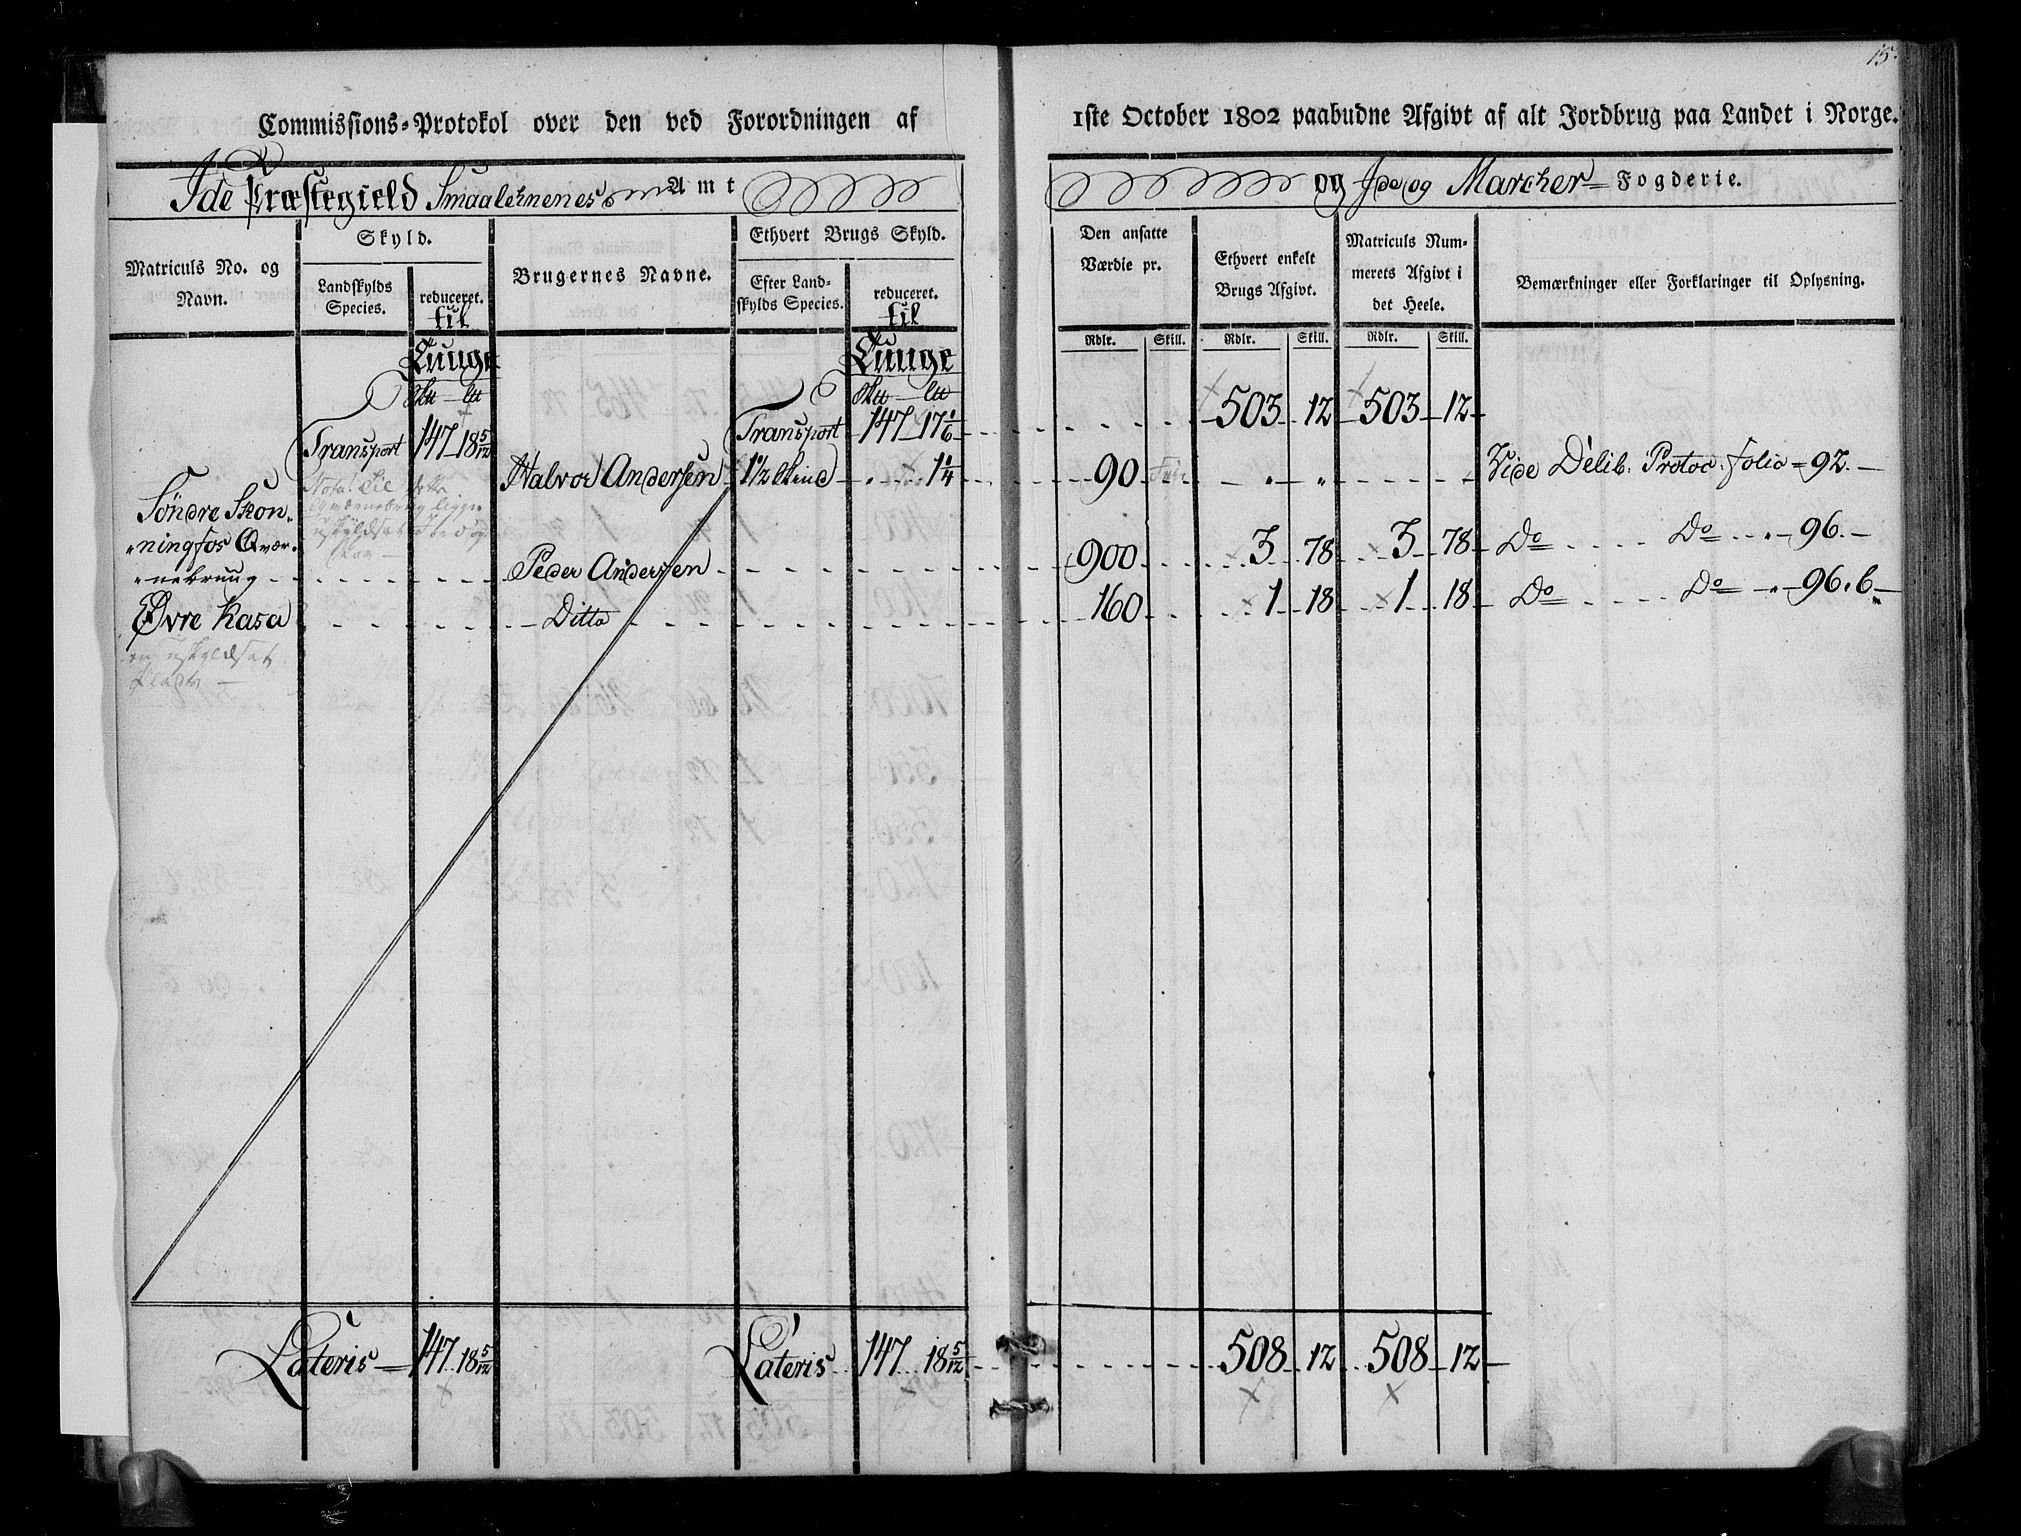 15.
Commissions=Protokol over den ved Forordningen af
1ste October 1802 paabudne Afgivt af alt Jordbrug paa Landet i Norge.
Ide Præstegield Smaalehnenes Amt
og Ide og Marcher Fogderie.
Matriculs No. og Navn.
Skyld.
Landskylds Species.
reduceret. til
Brugernes Navne.
Ethvert Brugs Skyld.
Efter Land-
skylds Species.
reduceret. til
Den ansatte
Værdie pr.
Ethvert enkelt
Brugs Afgivt.
Matriculs Num-
merets Afgivt i
det Heele.
Bemærkninger eller Forklaringer til Oplysning.
Rdlr. Skill. Rdlr. Skill. Rdlr. Skill.
Tunge Tunge
Transport 147 18 5/12 Transport 147 17 1/6 503 12 503 12
Halvor Andersen 1 1/2 Skind 1 1/4 90 Frie Vide Delib. Protoc. folio 92.
Nota
Söndre Skon-
ningfos Qvær-
nebrug Peder Andersen 900 3 78 3 78 Do Do 96.
Øvre Kasa Ditto 160 1 18 1 18 Do Do 96.b.
en uskyldsat
Plads
Lateris 147 18 5/12 Lateris 147 18 5/12 508 12 508 12